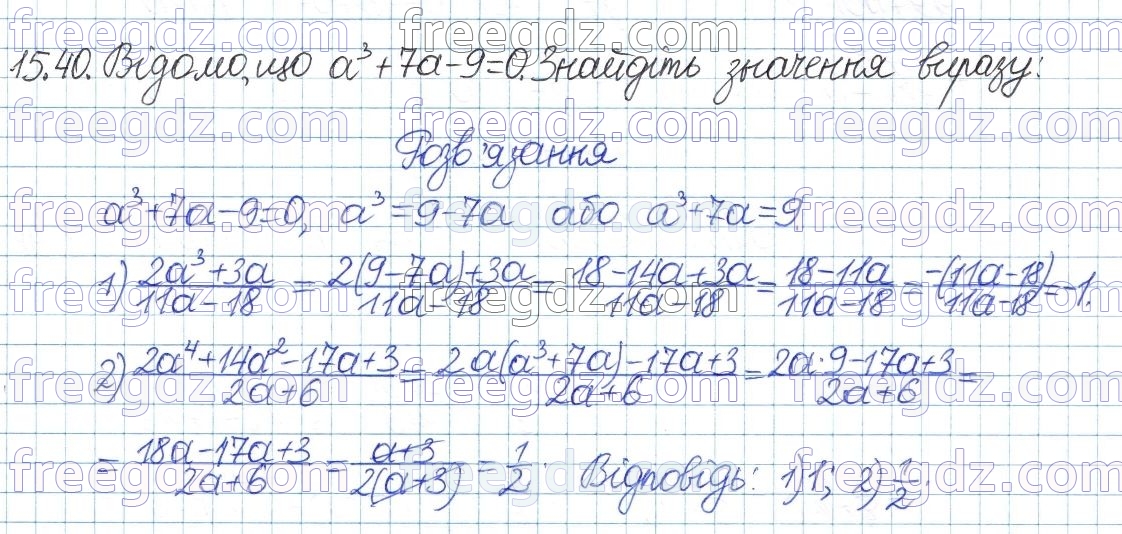 freegdz.com freegdz.com freegdz.com
15.40. Відомо, що a³+7a-9=0. Знайдіть значення виразу:
freegdz.com freegdz.com freegdz.com
Розв'язання
freegdz.com freegdz.com freegdz.com
a³+7a-9=0, a³=9-7a або a³+7a=9
freegdz.com freegdz.com freegdz.com
1) (2a³+3a)/(11a-18) = (2(9-7a)+3a)/(11a-18) = (18-14a+3a)/(11a-18) = (18-11a)/(11a-18) = (-(11a-18))/(11a-18) = -1.
freegdz.com freegdz.com freegdz.com
2) (2a⁴+14a²-17a+3)/(2a+6) = (2a(a³+7a)-17a+3)/(2a+6) = (2a·9-17a+3)/(2a+6) =
freegdz.com freegdz.com freegdz.com
= (18a-17a+3)/(2a+6) = (a+3)/(2(a+3)) = 1/2. Відповідь: 1) 1; 2) 1/2.